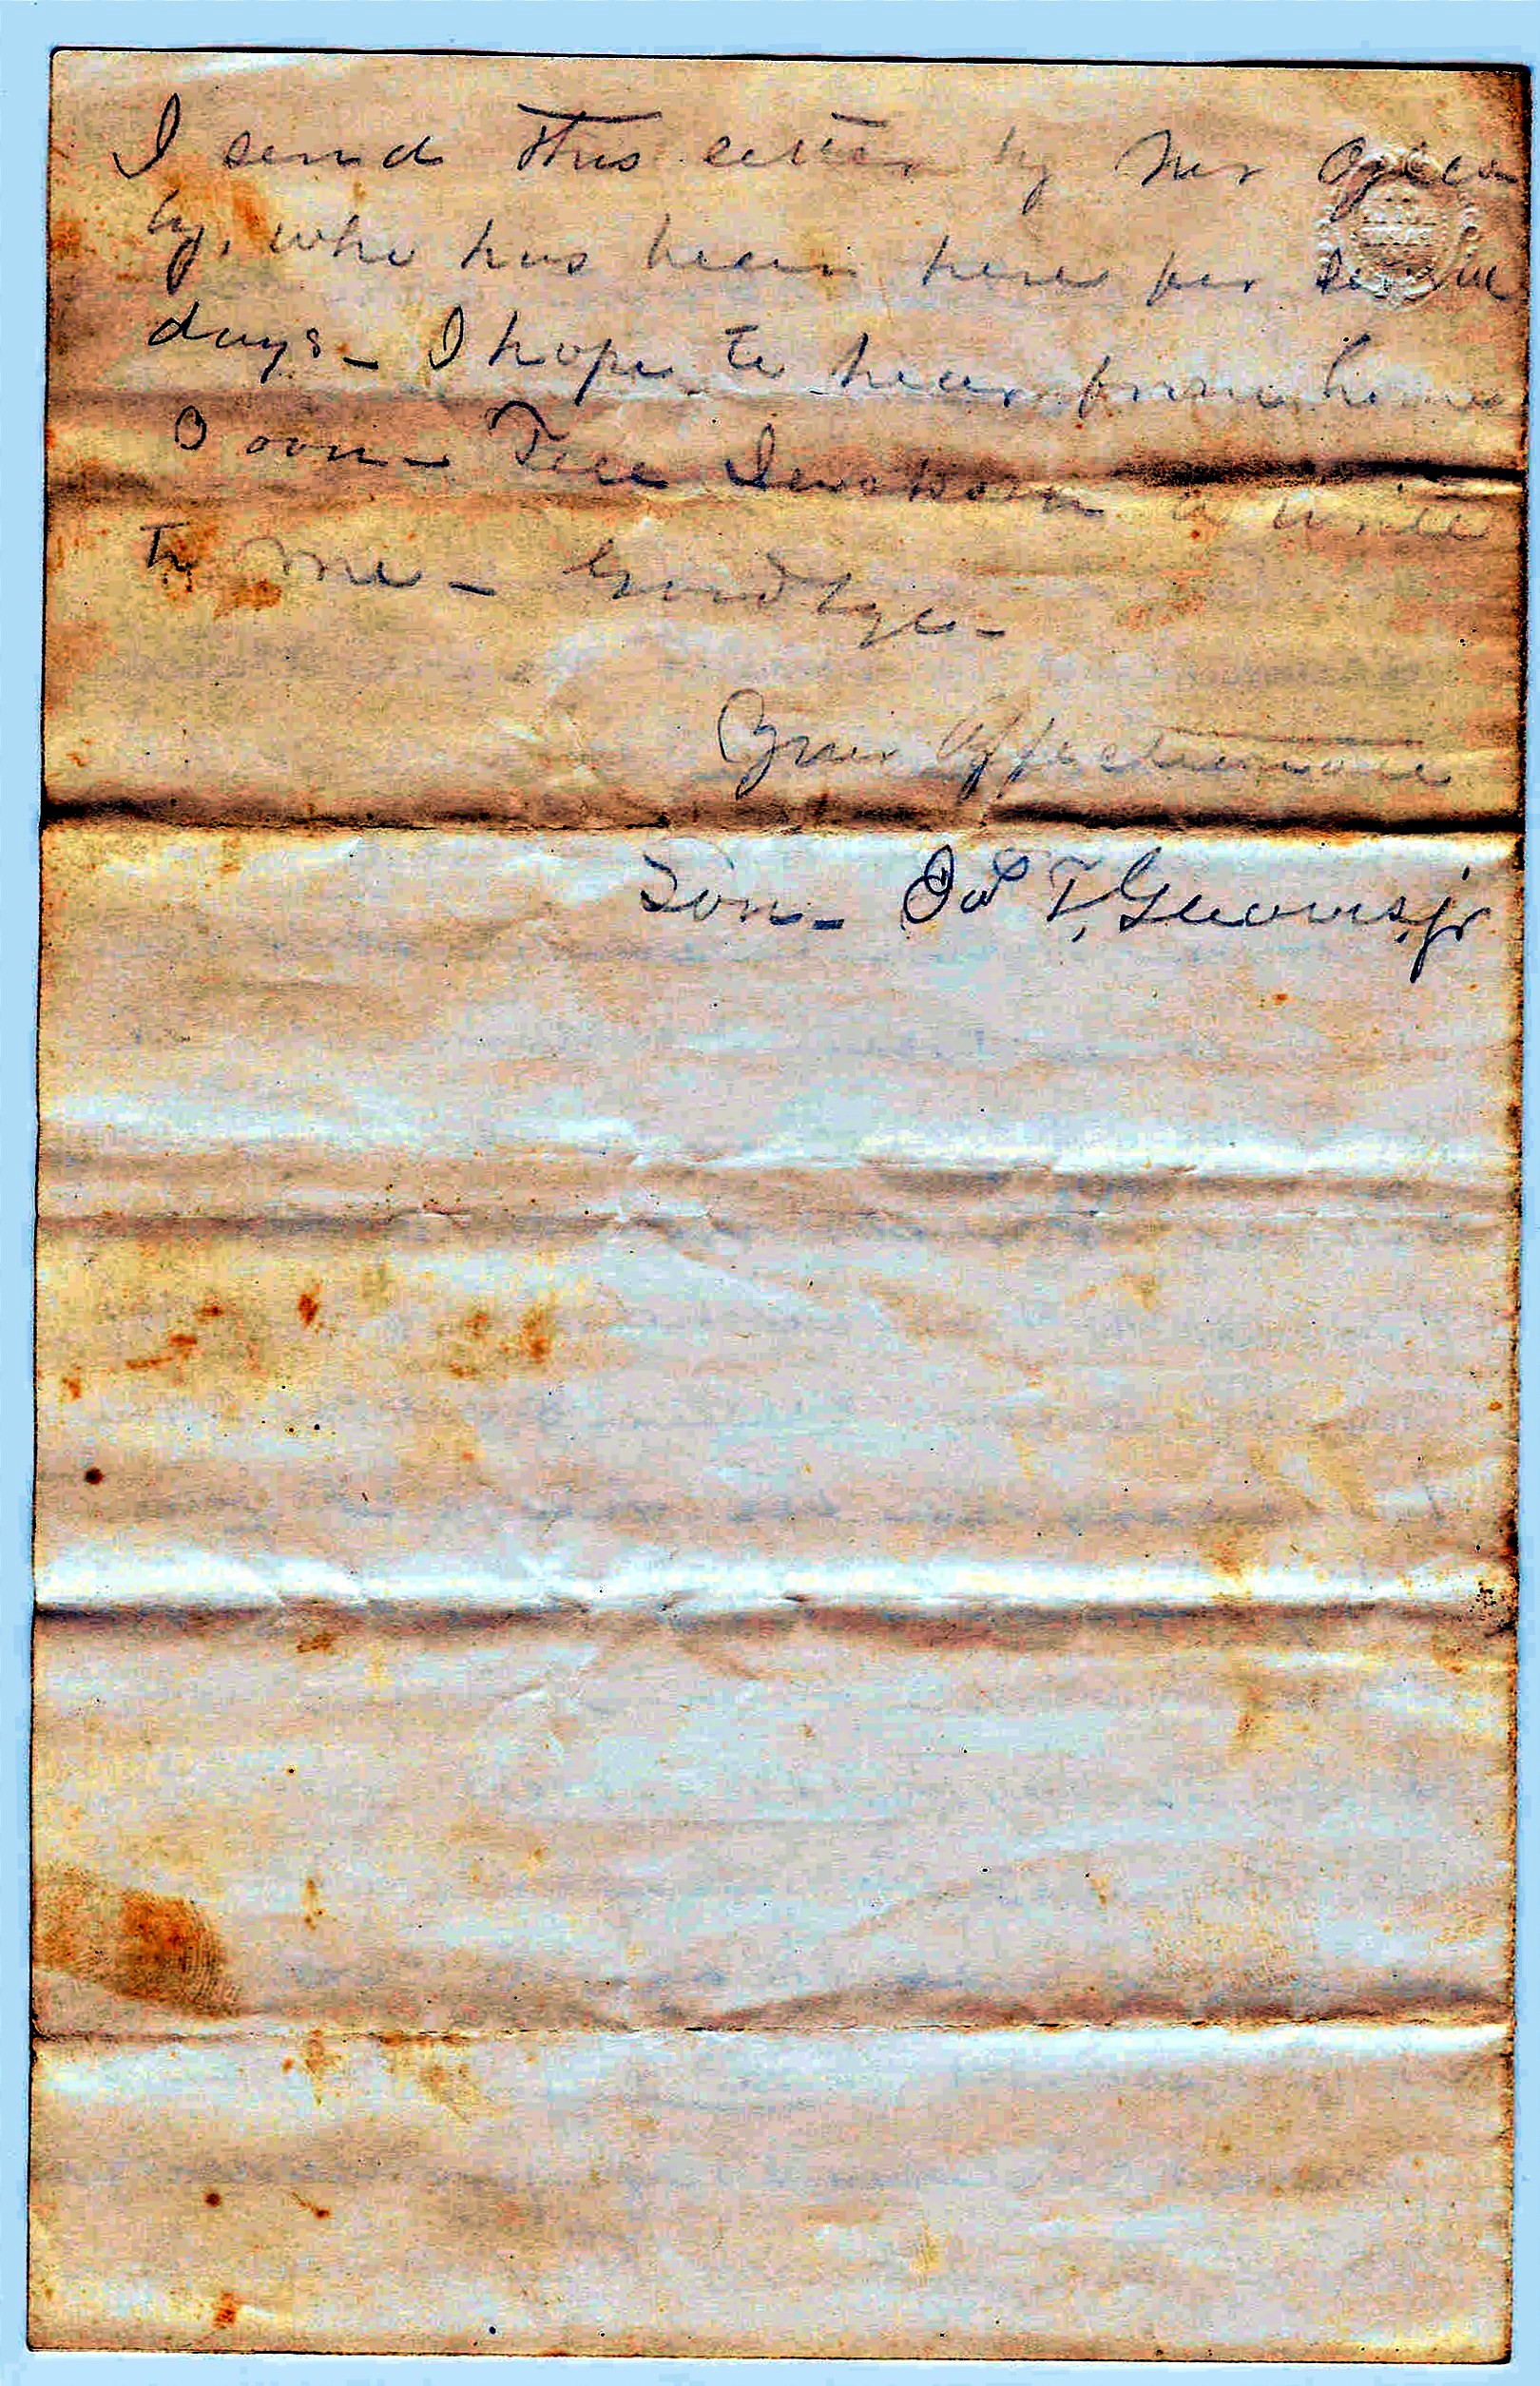 I send this letter by Mr Ogles
by, who has been here for several
days - I hope to hear from home
Soon - Tell to write
to me - Goodbye -
Your Affectionate
Son - Jos T, jr